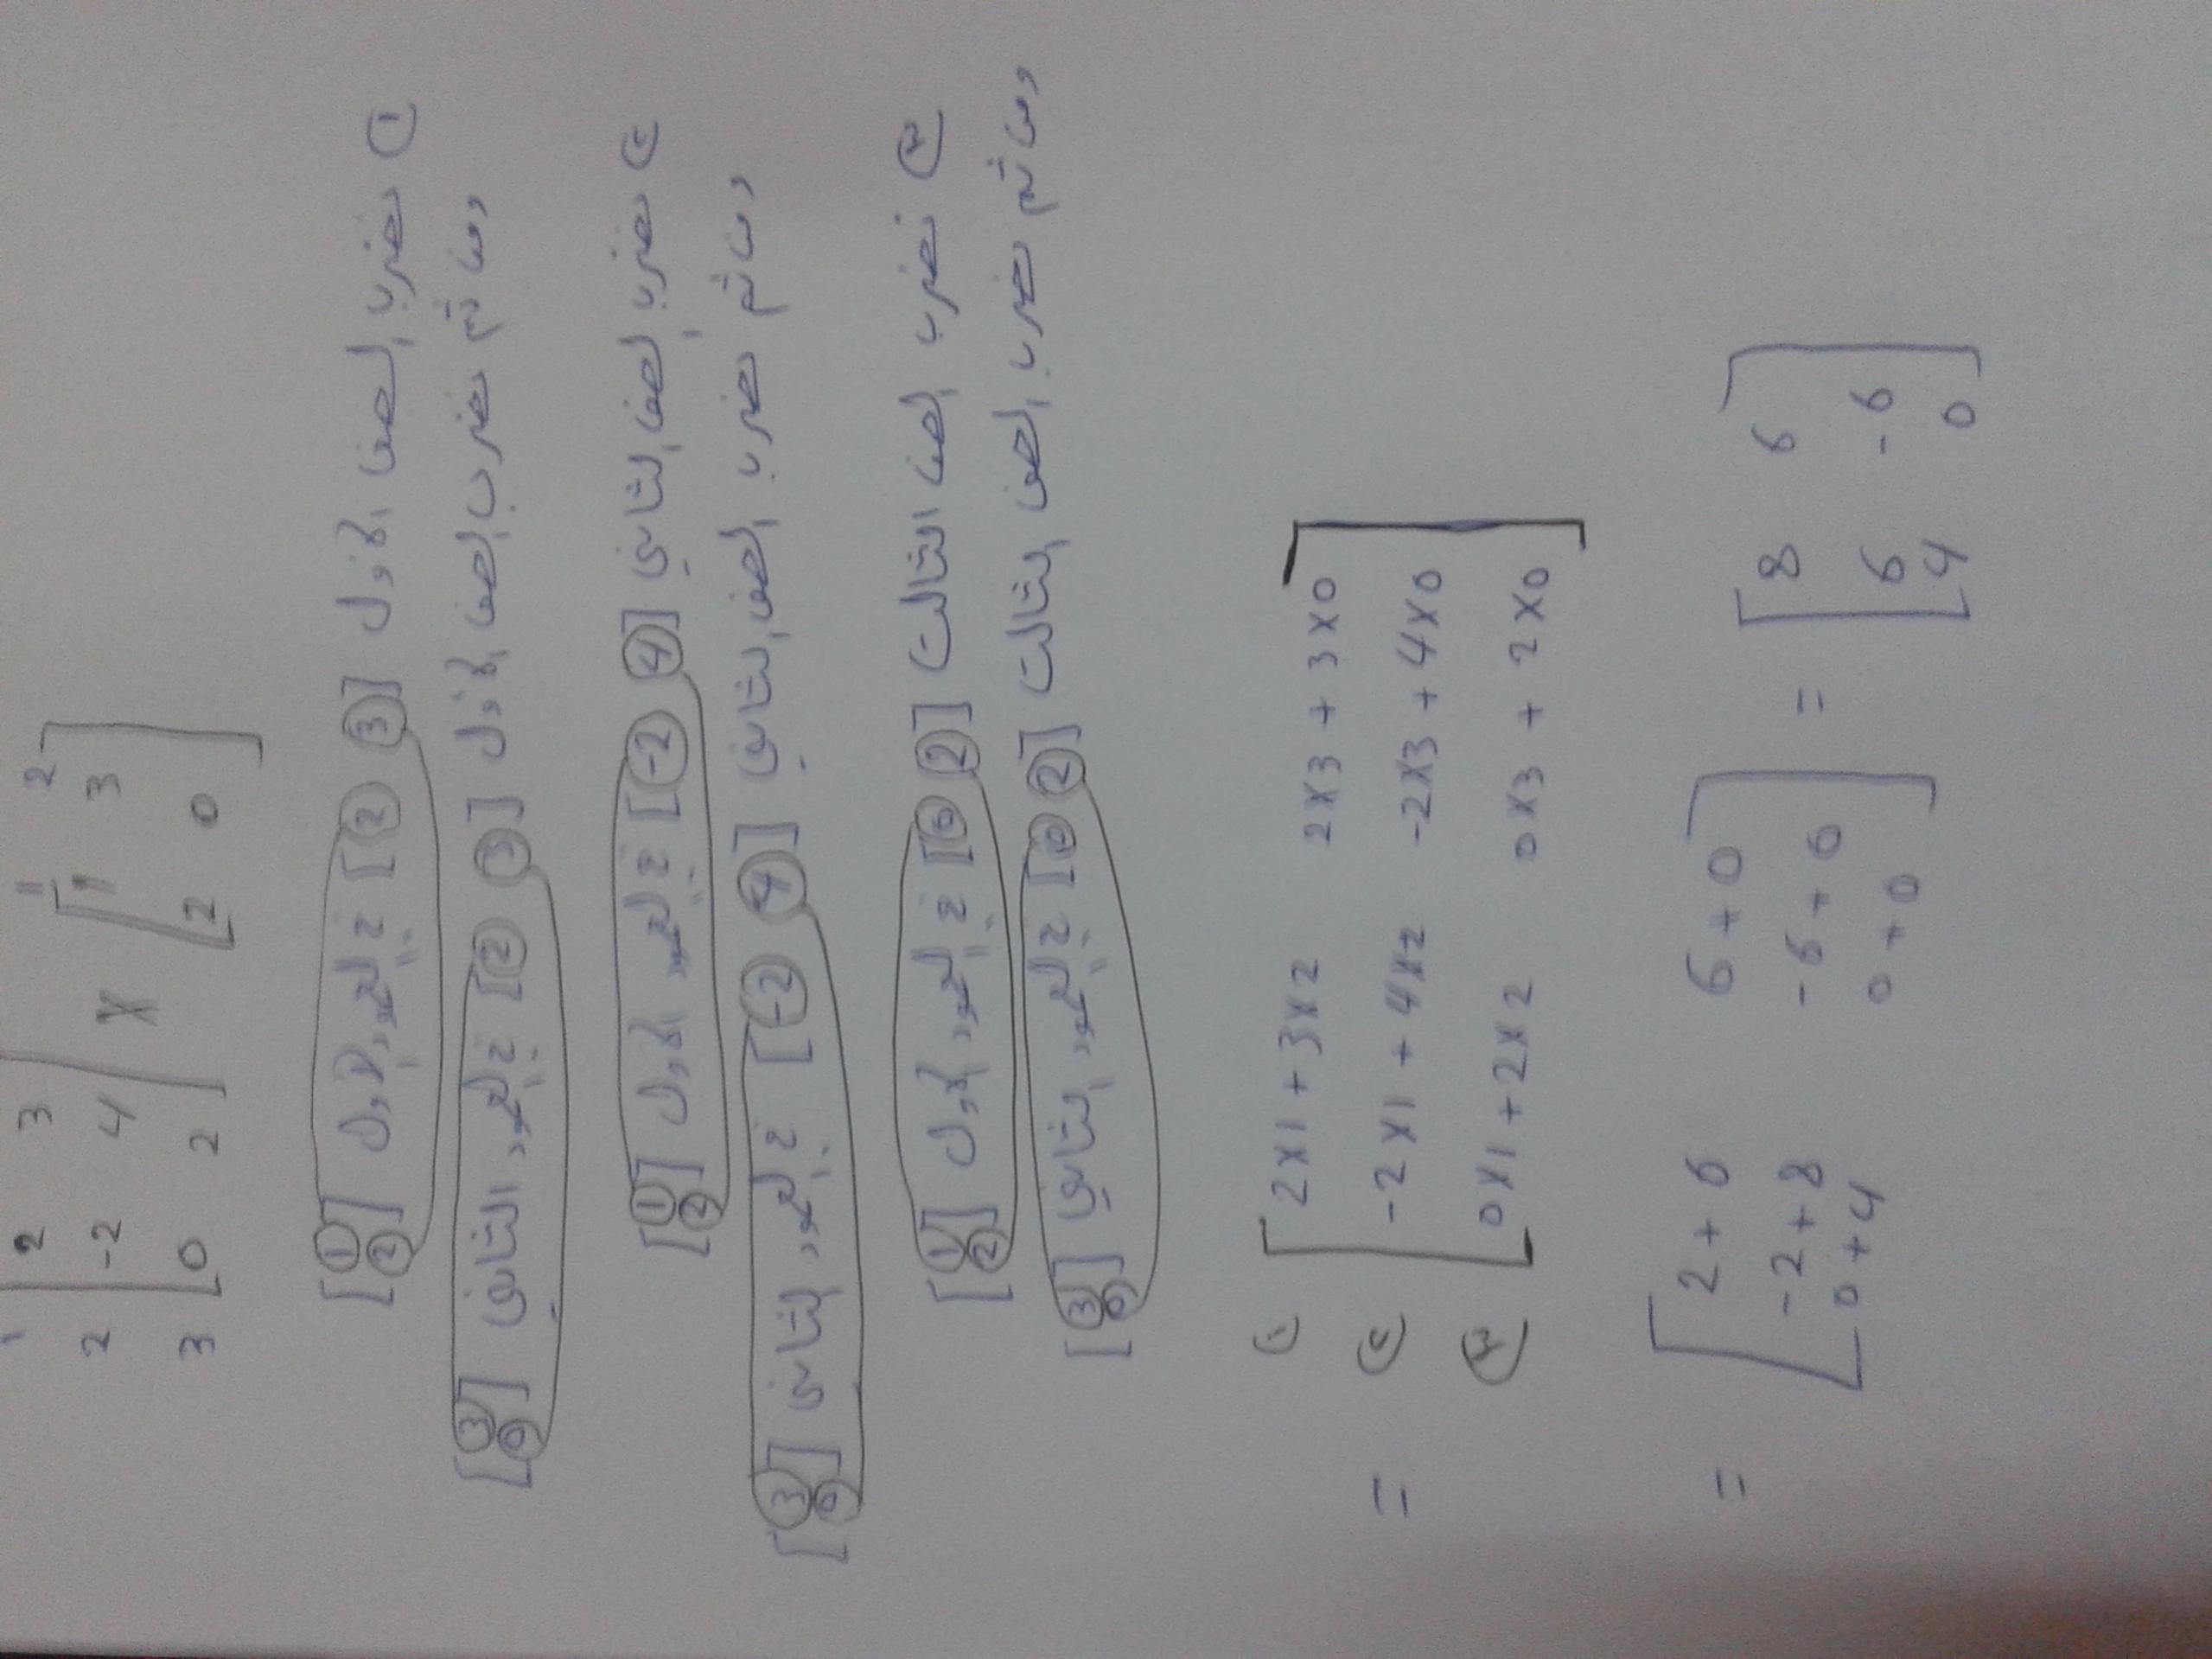 1 2
1 [ 2 3 ] [ 1 3 ]
2 [ -2 4 ] X [ 2 0 ]
3 [ 0 2 ]
① نضرب الصف الأول [2 3] في العمود الأول [1 2]
ومن ثم نضرب الصف الأول [2 3] في العمود الثاني [3 0]
② نضرب الصف الثاني [-2 4] في العمود الأول [1 2]
ومن ثم نضرب الصف الثاني [-2 4] في العمود الثاني [3 0]
③ نضرب الصف الثالث [0 2] في العمود الأول [1 2]
ومن ثم نضرب الصف الثالث [0 2] في العمود الثاني [3 0]
① [ 2x1 + 3x2 2x3 + 3x0 ]
= ② [ -2x1 + 4x2 -2x3 + 4x0 ]
③ [ 0x1 + 2x2 0x3 + 2x0 ]
= [ 2 + 6 6 + 0 ] = [ 8 6 ]
[ -2 + 8 -6 + 0 ] [ 6 -6 ]
[ 0 + 4 0 + 0 ] [ 4 0 ]